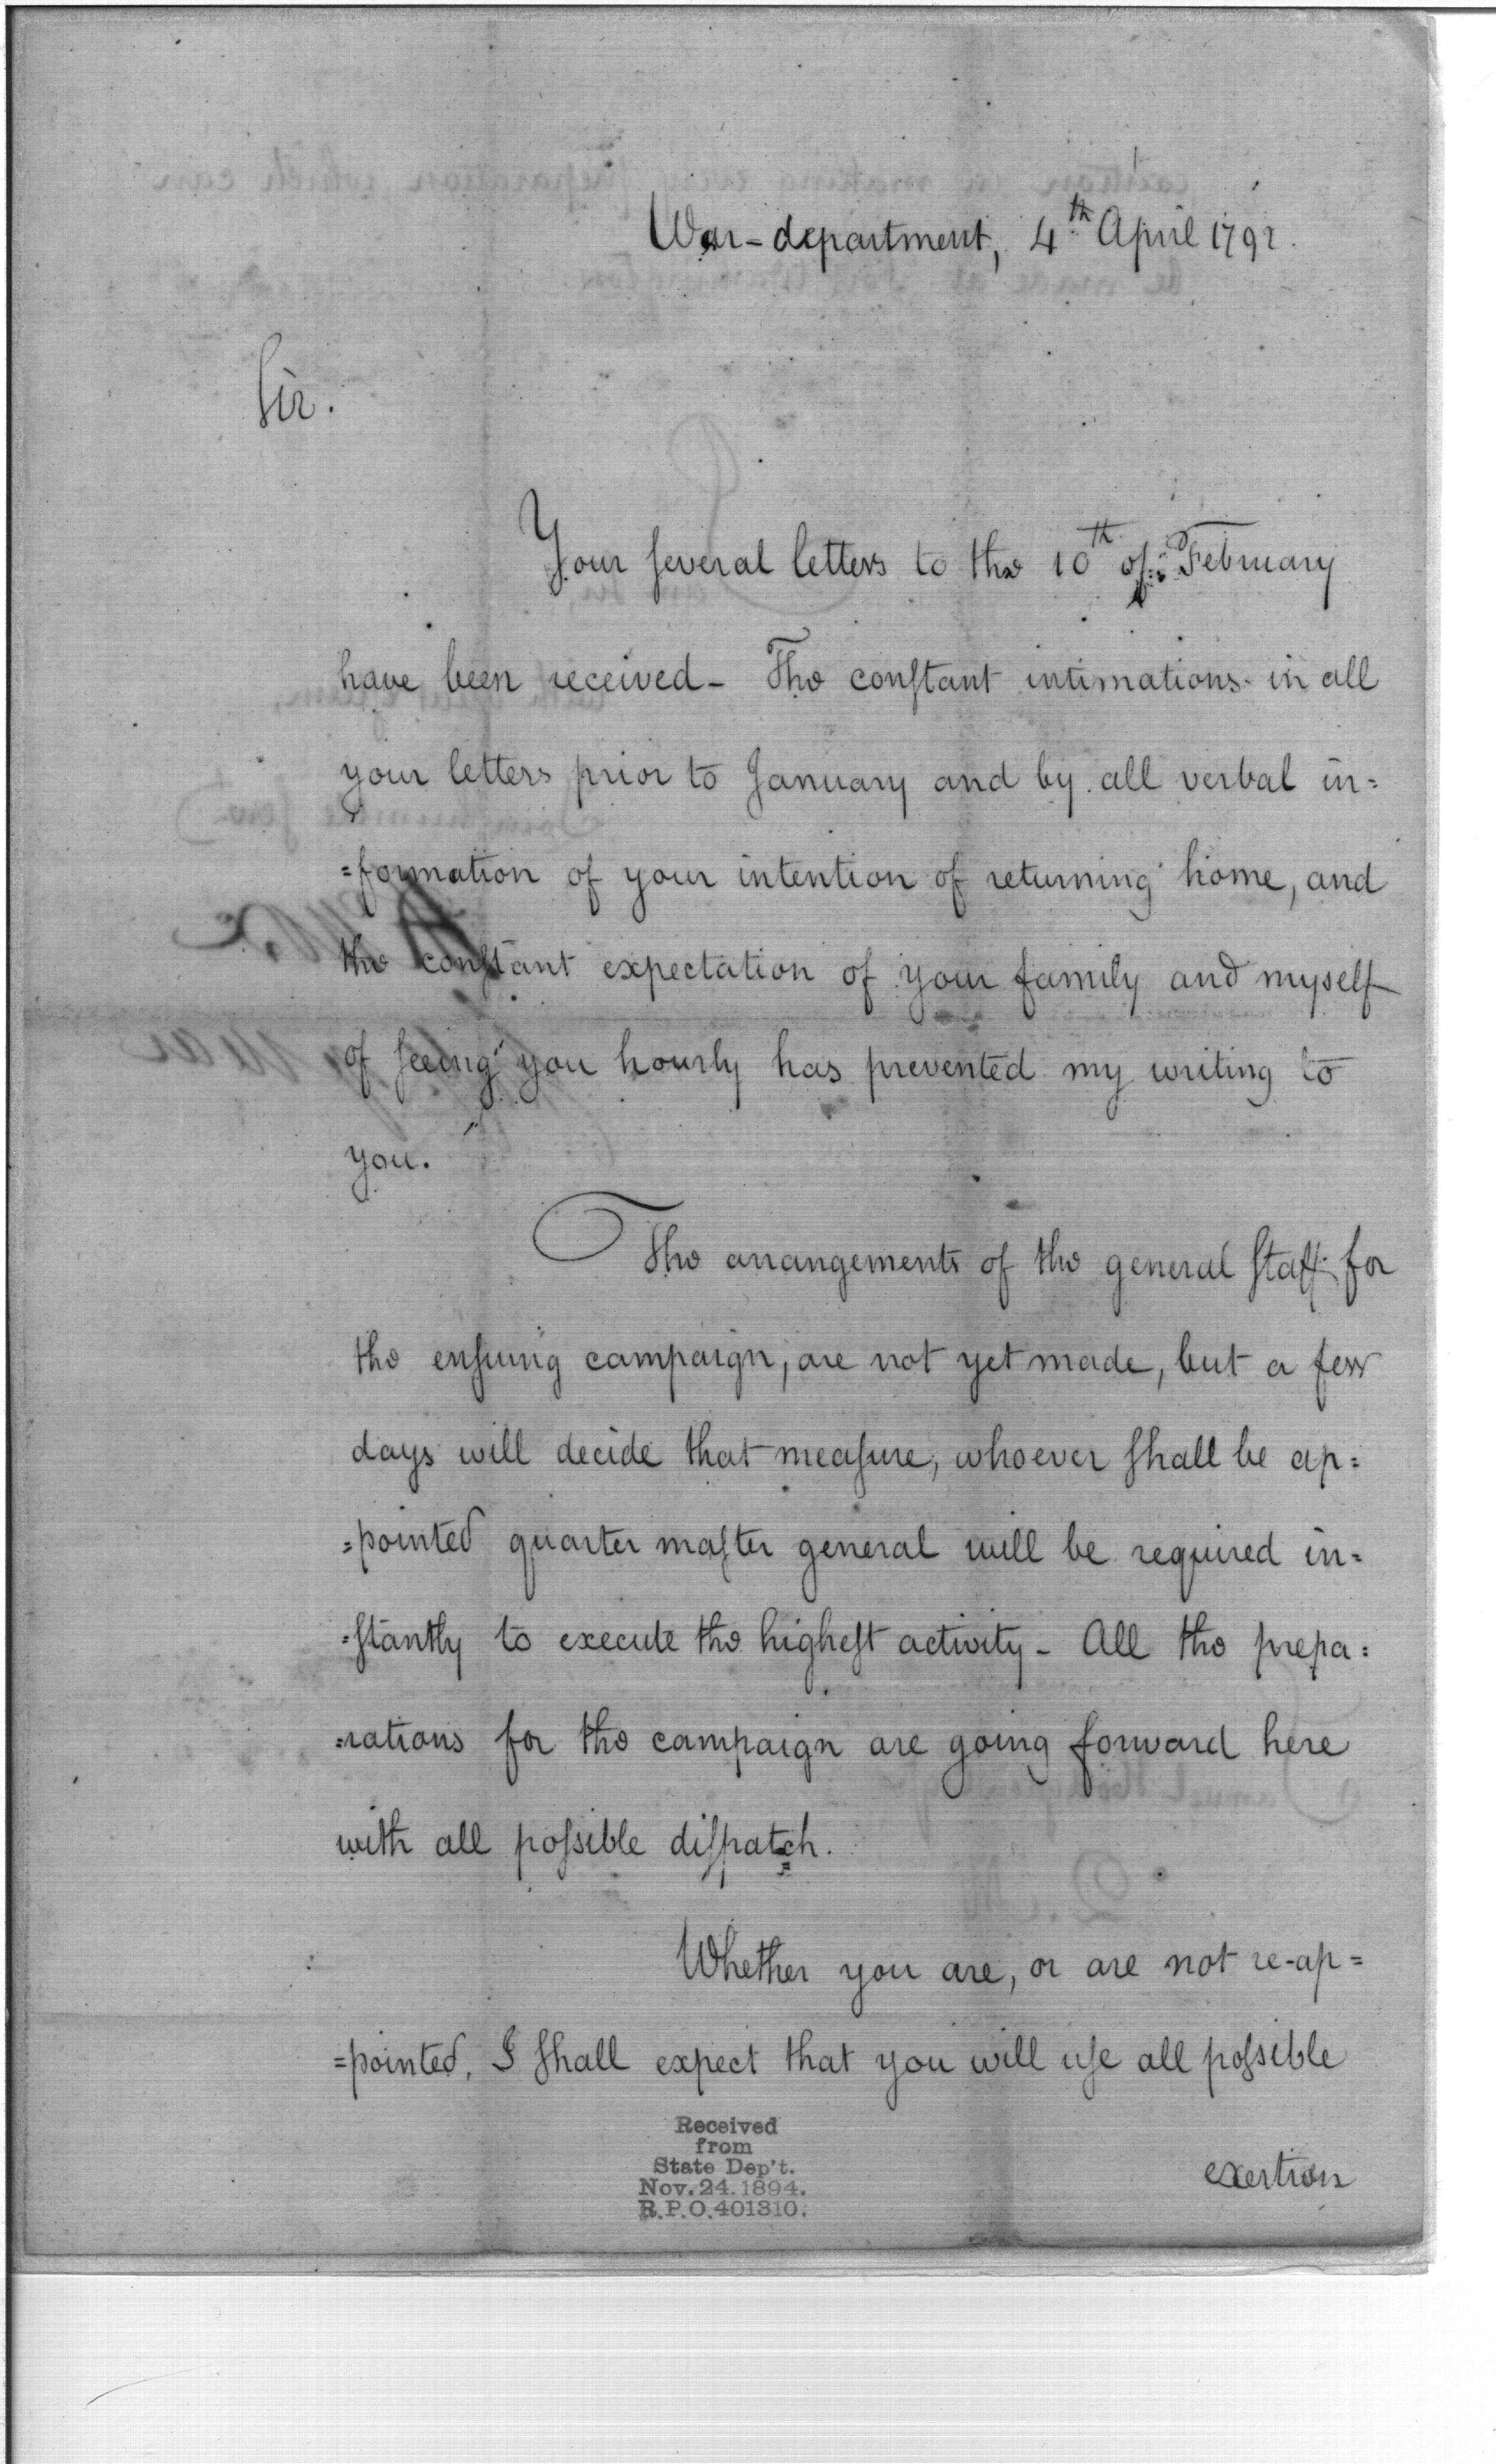 War-department, 4th April 1792.
Sir.
Your several letters to the 10th of February
have been received - The constant intimations in all
your letters prior to January and by all verbal in=
=formation of your intention of returning home, and
the constant expectation of your family and myself
of seeing you hourly has prevented my writing to
you.
The arrangements of the general staff for
the ensuing campaign, are not yet made, but a few
days will decide that measure, whoever shall be ap=
=pointed quarter master general will be required in=
=stantly to execute the highest activity - All the prepa=
=rations for the campaign are going forward here
with all possible dispatch.
Whether you are, or are not re-ap=
=pointed, I shall expect that you will use all possible
exertion
Received
from
State Dep't.
Nov. 24. 1894.
R.P.O. 401310.